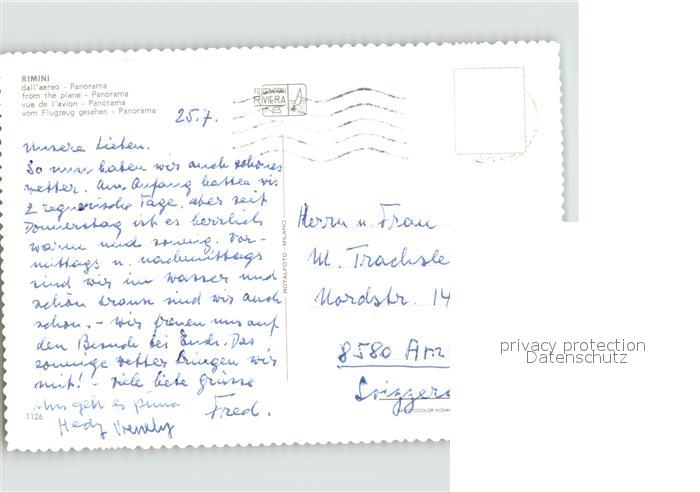 RIMINI
dall'aereo - Panorama
from the plane - Panorama
vue de l'avion - Panorama
vom Flugzeug gesehen - Panorama
RIVIERA
25.7.
Unsere Lieben.
So nun haben wir auch schönes
wetter. Am Anfang hatten wir
2 regnerische Tage, aber seit
Donnerstag ist es herrlich
warm und sonnig. Vor-
mittags u. nachmittags
sind wir im Wasser und
schön braun sind wir auch
schon. - wir freuen uns auf
den Besuch bei Euch. Das
sonnige wetter bringen wir
mit! - viele liebe grüsse
Uns geht es prima
Fred.
Hedy
1126
ROTALFOTO - MILANO
Herrn u. Frau
M. Trachsle
Nordstr. 14
8580 Am
Svizzera
privacy protection
Datenschutz